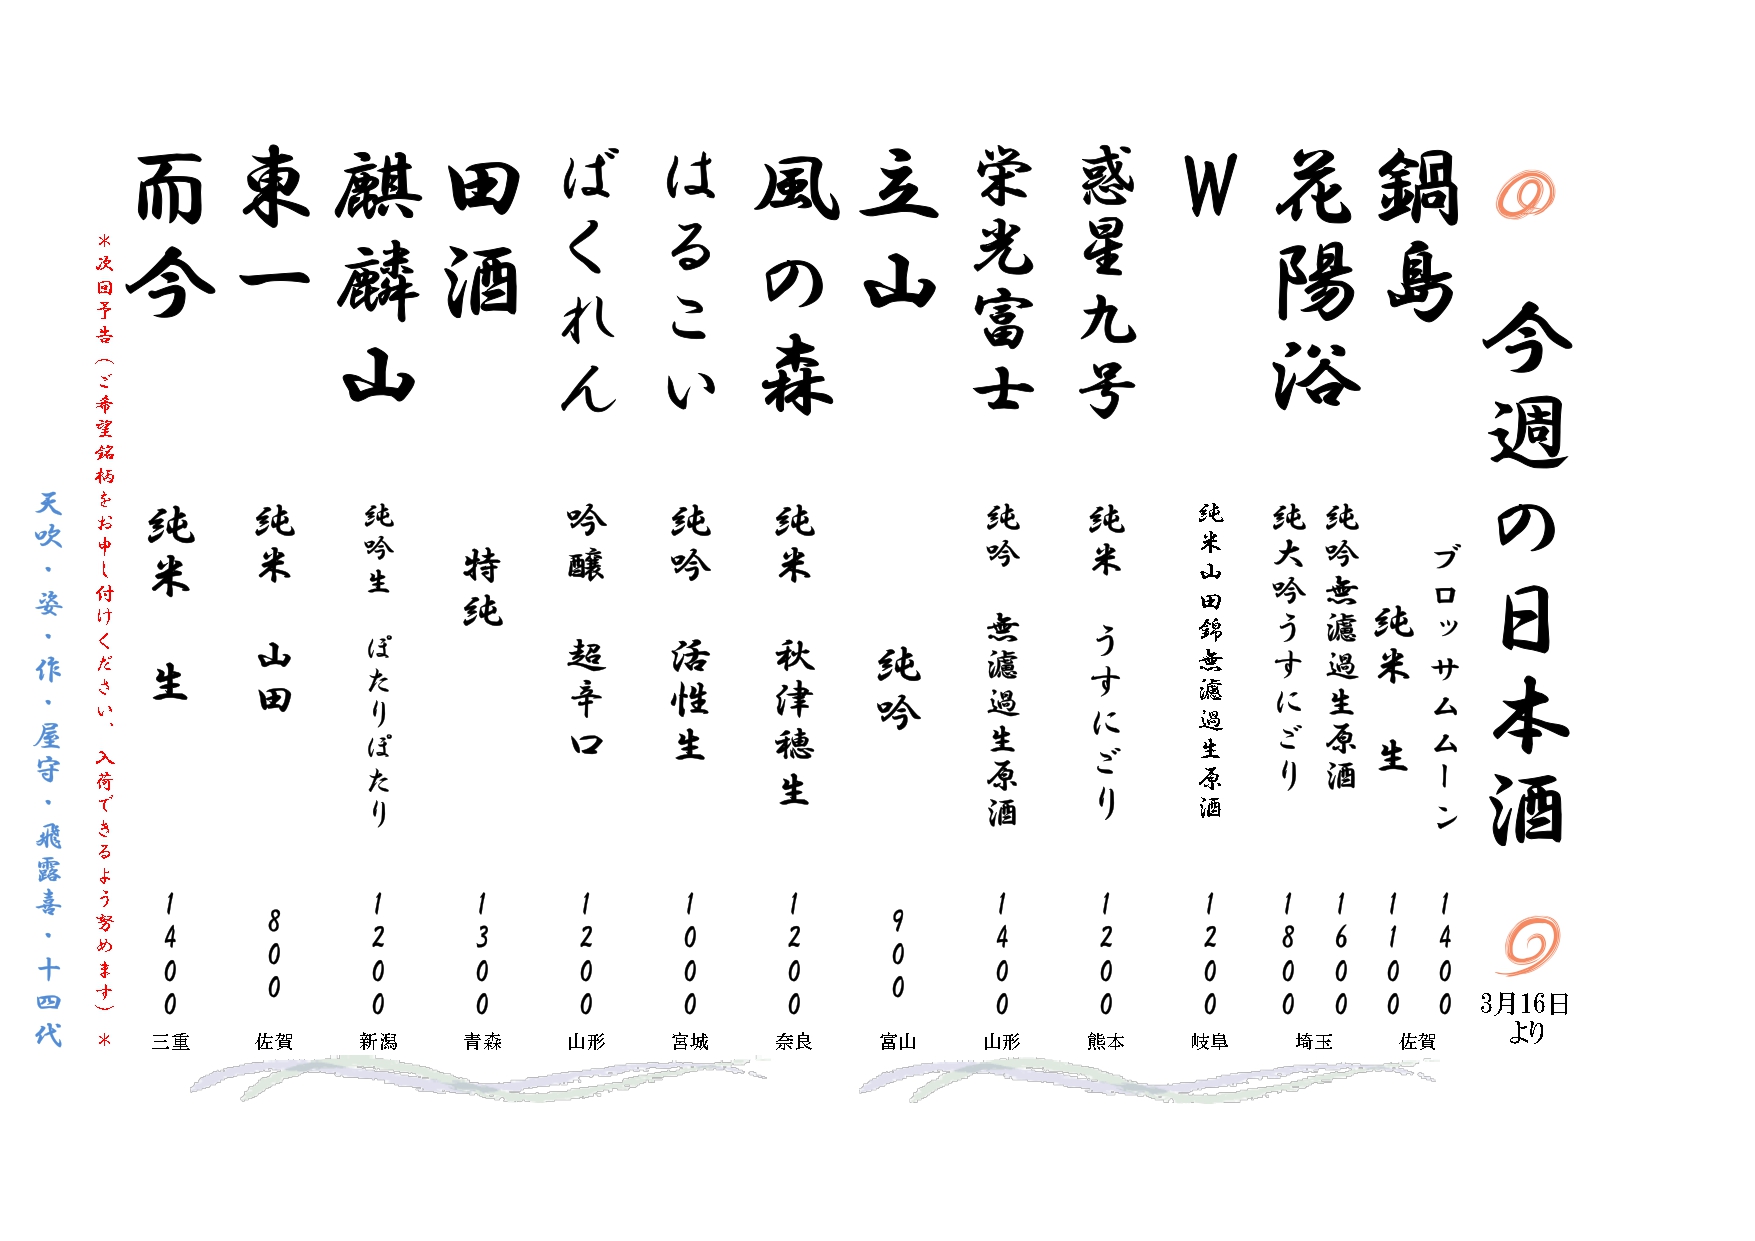 今週の日本酒
3月16日
より
鍋島
ブロッサムムーン 1400
純米 生 1100
佐賀
花陽浴
純吟無濾過生原酒 1600
純大吟うすにごり 1800
埼玉
W
純米山田錦無濾過生原酒 1200
岐阜
惑星九号
純米 うすにごり 1200
熊本
栄光富士
純吟 無濾過生原酒 1400
山形
立山
純吟 900
富山
風の森
純米 秋津穂生 1200
奈良
はるこい
純吟 活性生 1000
宮城
ばくれん
吟醸 超辛口 1200
山形
田酒
特純 1300
青森
麒麟山
純吟生 ぽたりぽたり 1200
新潟
東一
純米 山田 800
佐賀
而今
純米 生 1400
三重
＊次回予告（ご希望銘柄をお申し付けください、入荷できるよう努めます）＊
天吹・姿・作・屋守・飛露喜・十四代